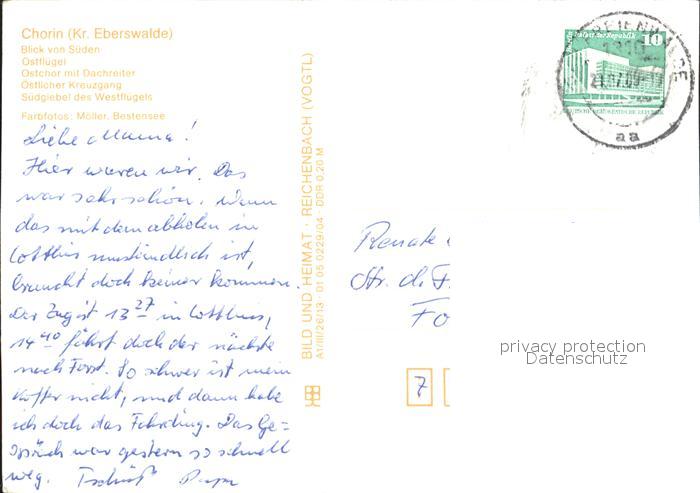 Chorin (Kr. Eberswalde)
Blick von Süden
Ostflügel
Ostchor mit Dachreiter
Östlicher Kreuzgang
Südgiebel des Westflügels
Farbfotos: Möller, Bestensee
Liebe Mama!
Hier waren wir. Das
war sehr schön. Wenn
das mit dem abholen in
Cottbus umständlich ist,
braucht doch keiner kommen.
Der Zug ist 13 27 in Cottbus,
14 40 fährt doch der nächste
nach Forst. So schwer ist mein
Koffer nicht, und dann habe
ich doch das Fahrding. Das Ge=
spräch war gestern so schnell
weg. Tschüß
BILD UND HEIMAT · REICHENBACH (VOGTL)
A1/III/26/13 · 01 05 0229/04 · DDR 0,20 M
10
aa
Renate
Str. d.
Fo
7
privacy protection
Datenschutz